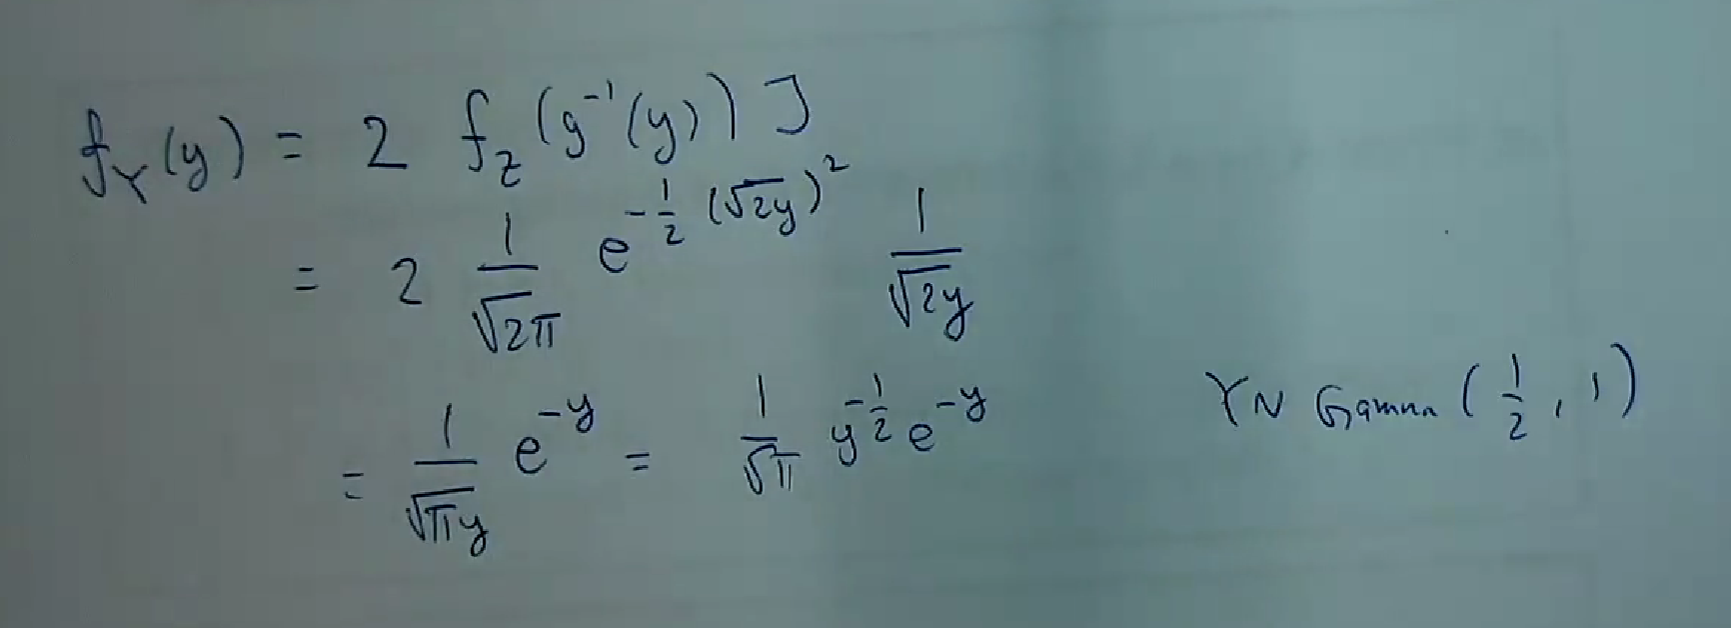 f_Y(y) = 2 f_Z(g⁻¹(y)) J
= 2 1/√2π e^(-1/2 (√2y)²) 1/√2y
= 1/√πy e^(-y) = 1/√π y^(-1/2) e^(-y) Y ~ Gamma (1/2, 1)